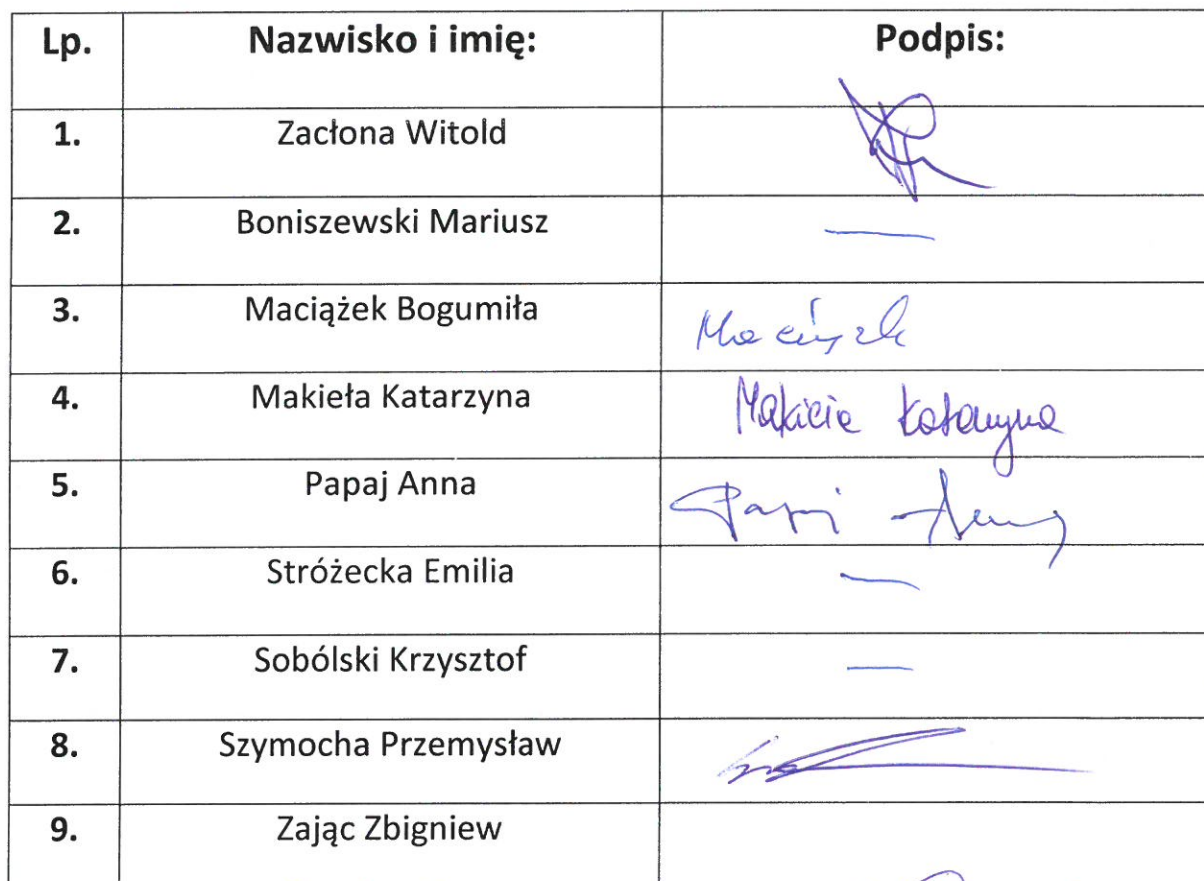 Lp. Nazwisko i imię: Podpis:
1. Zacłona Witold
2. Boniszewski Mariusz —
3. Maciążek Bogumiła
4. Makieła Katarzyna Makieła Katarzyna
5. Papaj Anna Papaj Anna
6. Stróżecka Emilia —
7. Sobólski Krzysztof —
8. Szymocha Przemysław
9. Zając Zbigniew